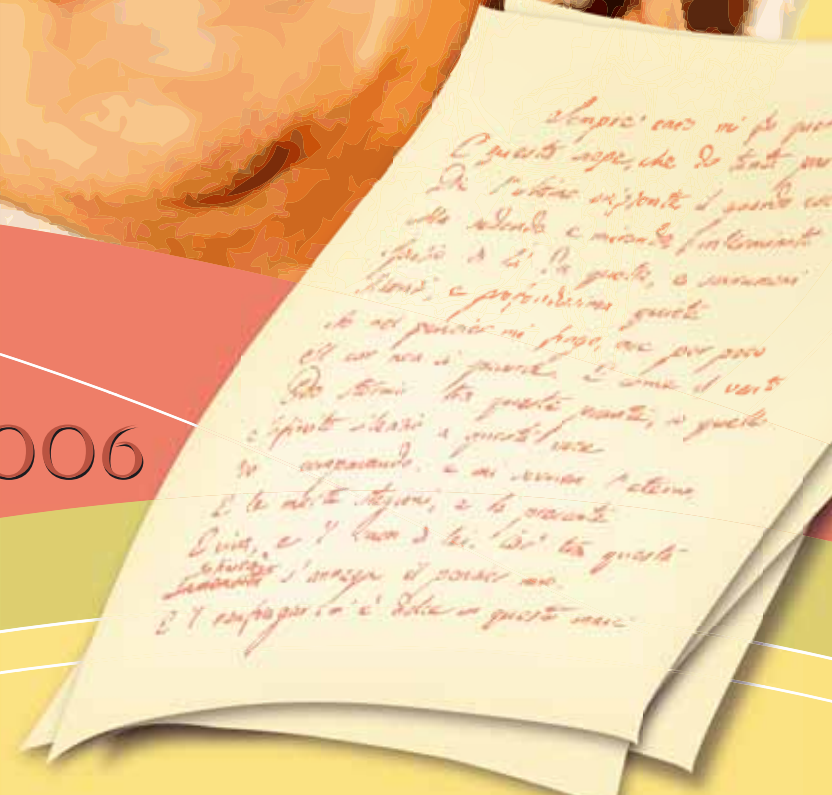 Sempre caro mi fu
E questa siepe, che da tanta
De l'ultimo orizzonte il guardo
Ma sedendo e mirando, l'interminato
Spazio di là da quella, e sovrumani
Silenzi, e profondissima quiete
Io nel pensier mi fingo, ove per poco
Il cor non si spaura. E come il vento
Odo stormir tra queste piante, io quello
Infinito silenzio a questa voce
Vo comparando: e mi sovvien l'eterno,
E le morte stagioni, e la presente
E viva, e 'l suon di lei. Così tra questa
Immensità s'annega il pensier mio:
E 'l naufragar m'è dolce in questo mare
006